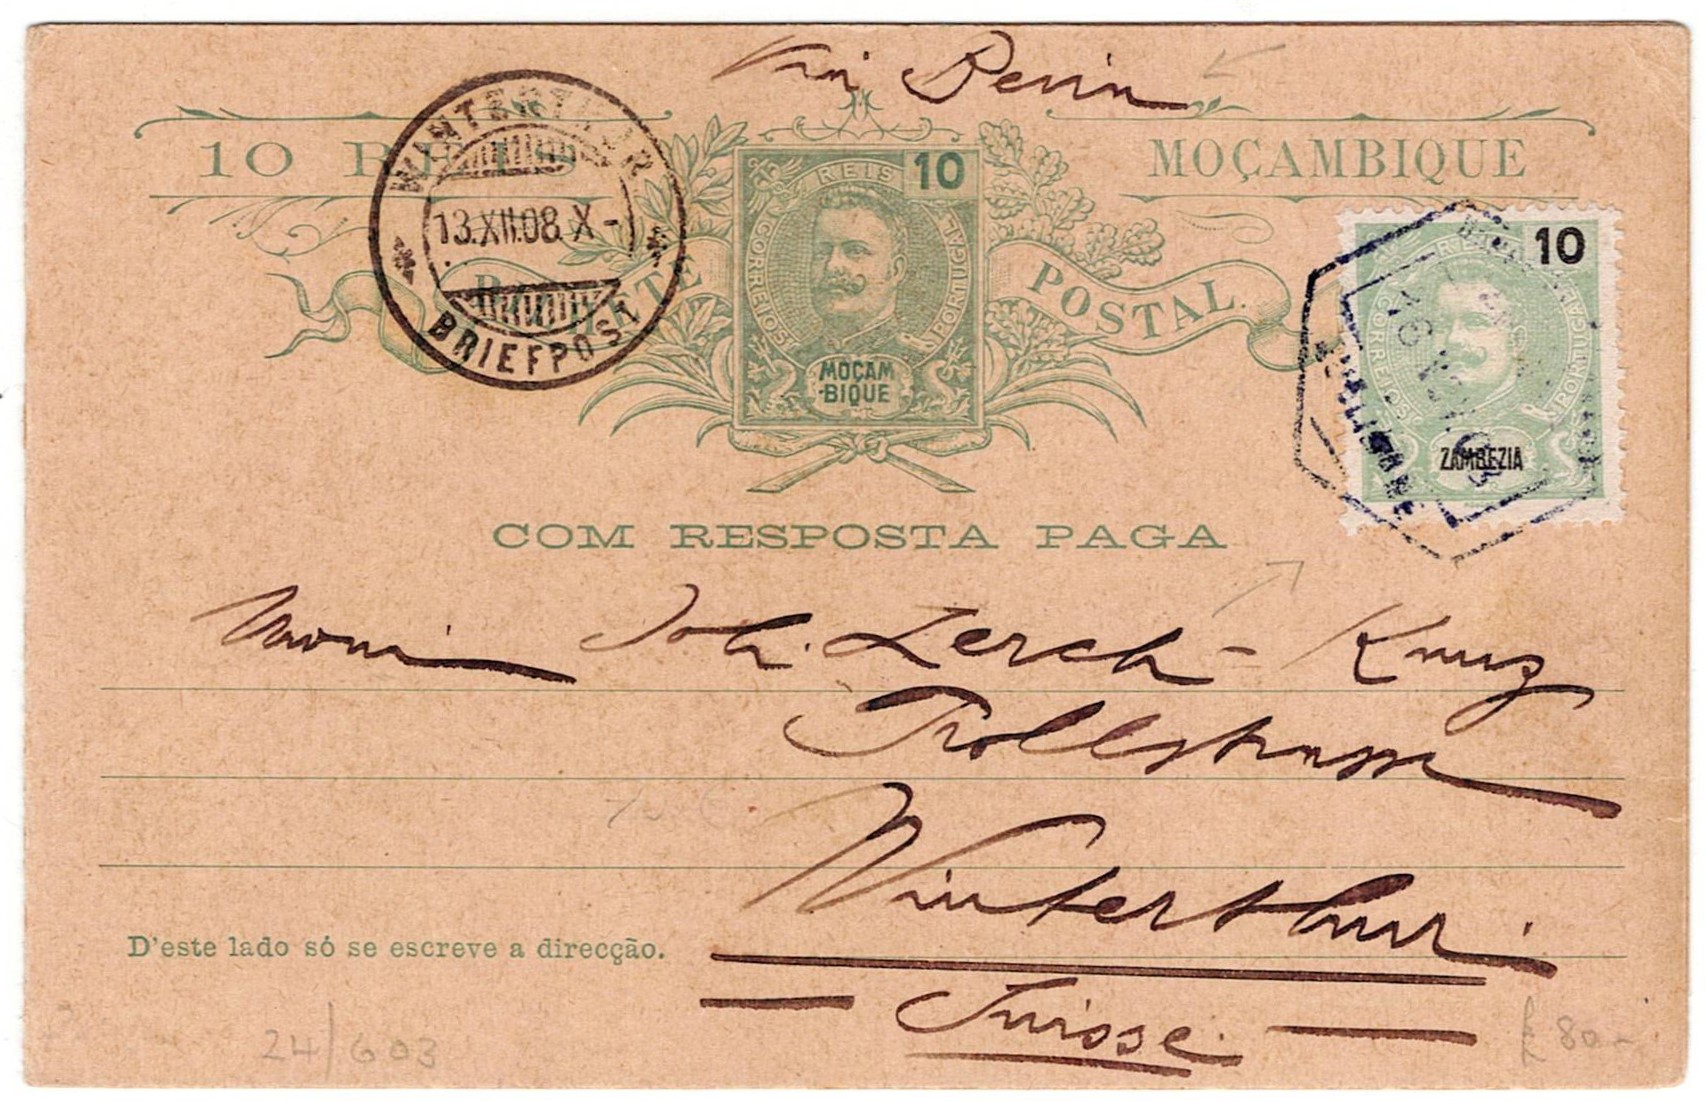 Via Beira
10 REIS
MOÇAMBIQUE
WINTERTHUR
13.XII.08.X-
BRIEFPOST
BILHETE POSTAL
REIS 10
CORREIOS
PORTUGAL
MOÇAM
-BIQUE
10
CORREIOS
PORTUGAL
ZAMBEZIA
QUELIMANE
COM RESPOSTA PAGA
Joh. Lerch-Kunz
Trollstrasse
Winterthur.
D'este lado só se escreve a direcção.
Suisse.
24/603
£ 80.-